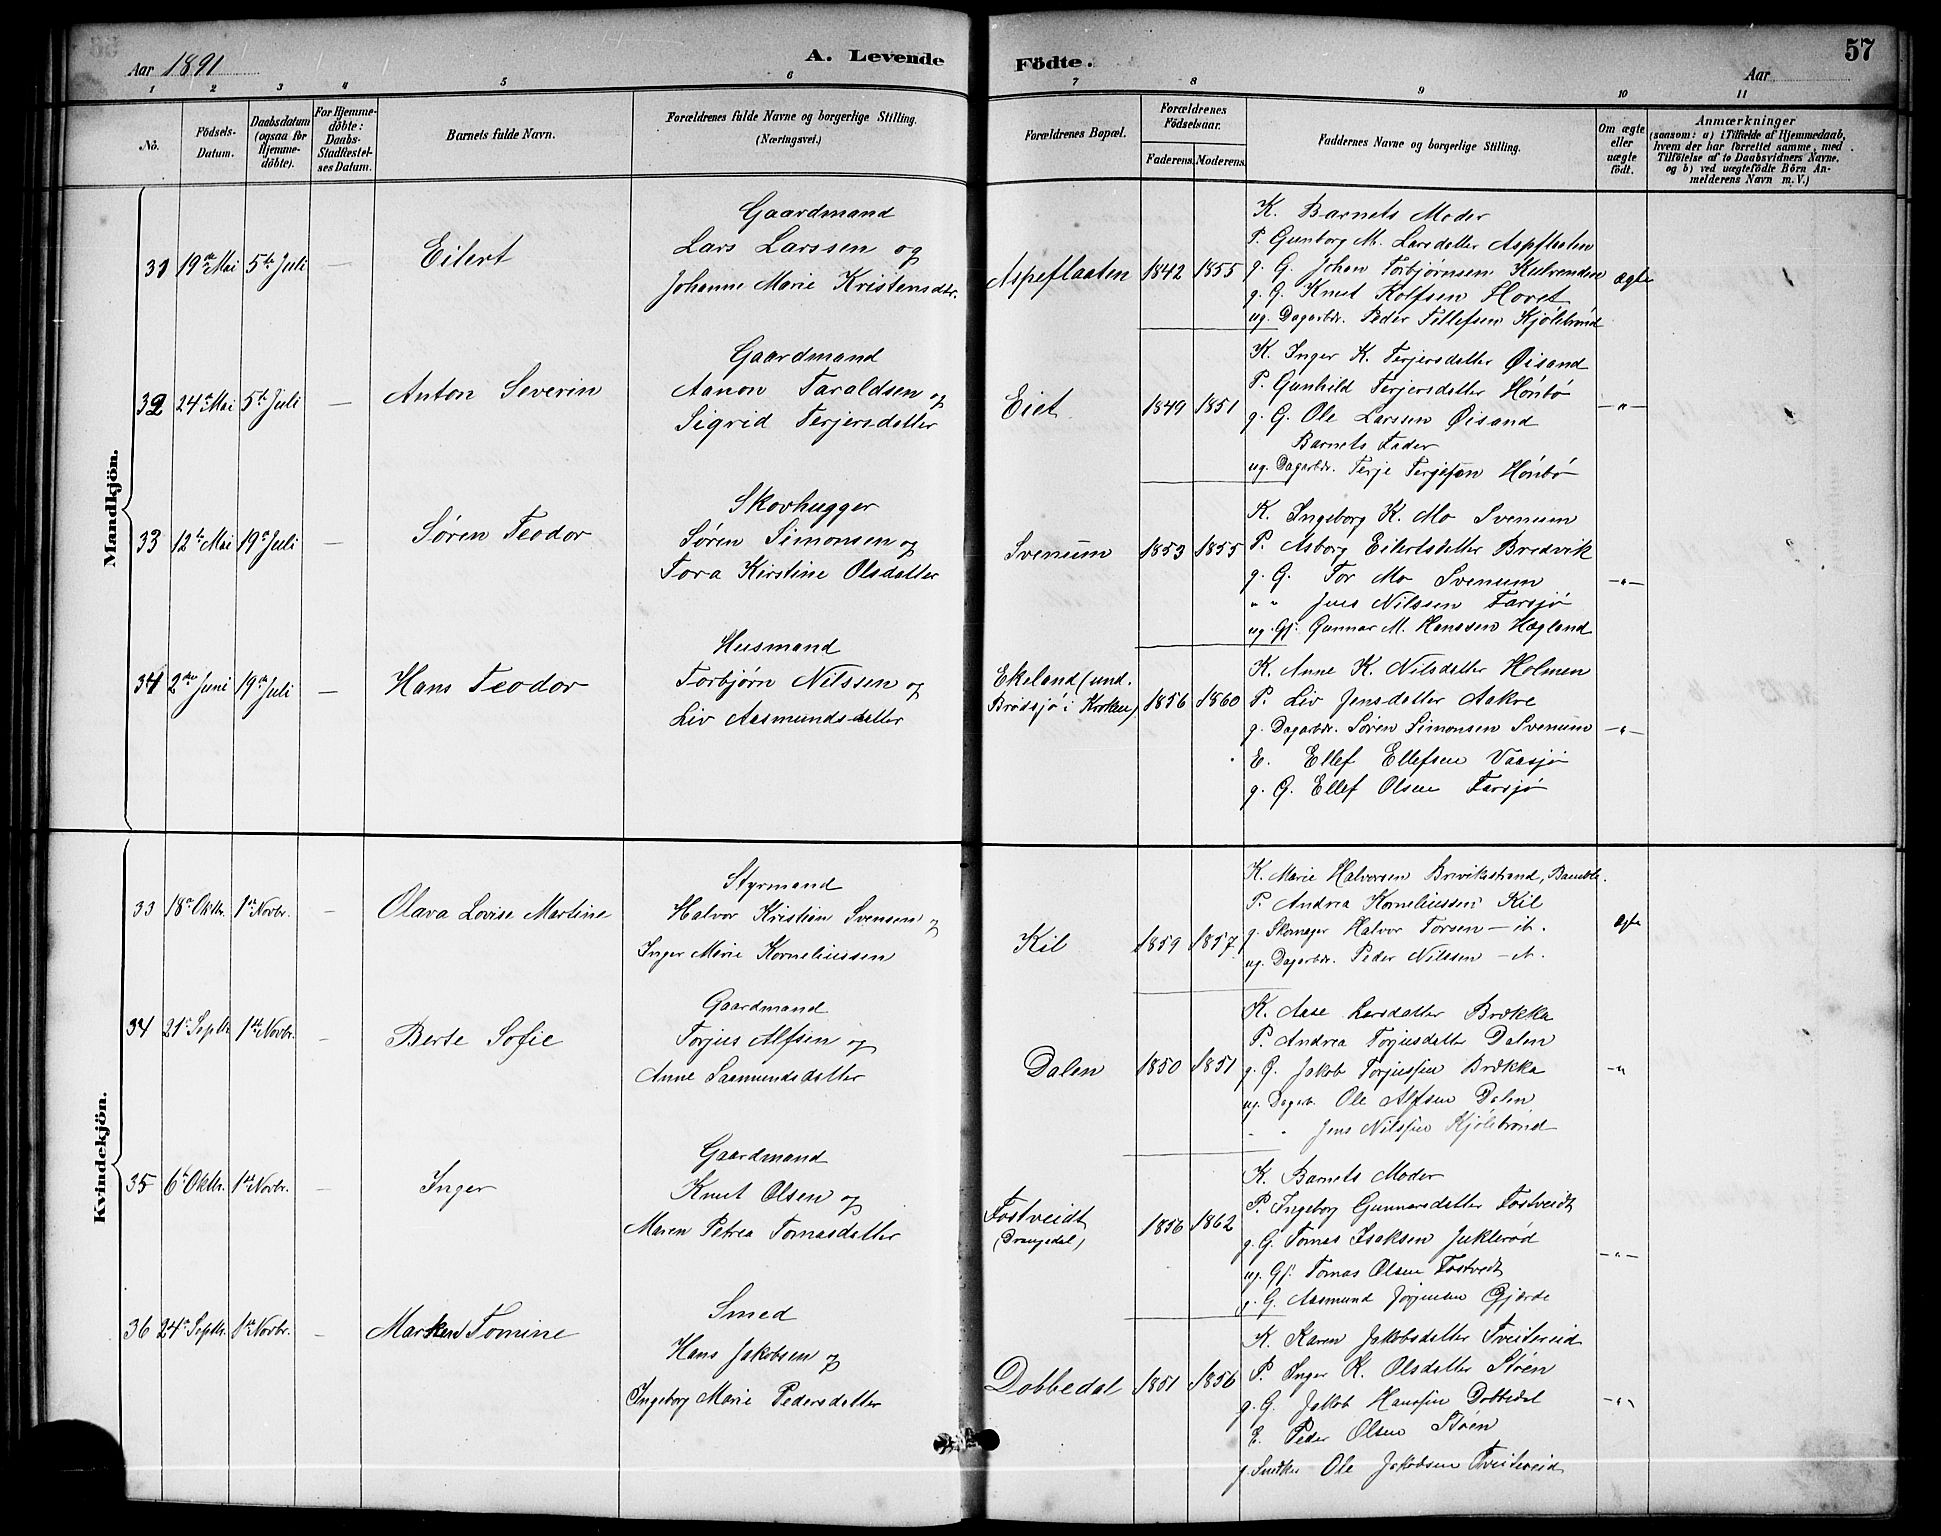 Aar 1891
A. Levende Födte.
57
Aar
1 2 3 4 5 6 7 8 9 10 11
No.
Födsels-Datum.
Daabsdatum (ogsaa for Hjemmedöbte).
For Hjemmedöbte: Daabs-Stadfestelses Datum.
Barnets fulde Navn.
Forældrenes fulde Navne og borgerlige Stilling.
(Næringsvei.)
Forældrenes Bopæl.
Forældrenes Födselsaar.
Faderens. Moderens.
Faddernes Navne og borgerlige Stilling.
Om ægte eller uægte födt.
Anmærkninger
(saasom: a) i Tilfælde af Hjemmedaab, hvem der har forrettet samme, med Tilföielse af to Daabsvidners Navne, og b) ved uægtefödte Börn Anmelderens Navn m. V.)
Mandkjön.
31 19de Mai 5te Juli — Eilert
Gaardmand
Lars Larssen og
Johanne Marie Kristensdtr.
Aspeflaaten 1842 1855
K. Barnets Moder
P. Gunborg M. Larsdatter Aspflaaten
g. G. Johan Torbjørnsen Kulvenden
g. G. Knut Rolfsen Hovet
ug. Dagarbdr. Peder Tellefsen Kjölebrönd
Ægte
32 24de Mai 5te Juli — Anton Severin
Gaardmand
Aanon Taraldsen og
Sigrid Terjersdatter
Eiet 1849 1851
K. Inger K. Terjersdatter Øisand
P. Gunhild Terjersdatter Hönbö
g. G. Ole Larssen Øisand
Barnets Fader
ug. Dagarbdr. Terje Terjesen Hönbö
—"—
33 12te Mai 19de Juli — Søren Teodor
Skovhugger
Søren Simonsen og
Tora Kirstine Olsdatter
Svenum 1853 1855
K. Ingeborg K. Mo Svenum
P. Asborg Eilertsdatter Bredvik
g. G. Tor Mo Svenum
" " Jens Nilssen Farsjø
ug. Gj. Gunnar M. Hanssen Hægland
—"—
34 2den Juni 19de Juli — Hans Teodor
Husmand
Torbjørn Nilssen og
Liv Aasmundsdatter
Ekeland (und.
Brødsjø i Kroken) 1856 1860
K. Anne K. Nilsdatter Holmen
P. Liv Jensdatter Aakre
g. Dagarbdr. Søren Simonsen Svenum
E. Ellef Ellefsen Vaasjø
g. G. Ellef Olsen Farsjø
—"—
Kvindekjön.
33 18de Oktbr. 1ste Novbr. — Olava Lovise Martine
Styrmand
Halvor Kristian Svensen og
Inger Marie Korneliussen
Kil 1859 1857
K. Marie Halvorsen Brevikstrand, Bamble.
P. Andrea Korneliussen Kil
g. Skomager Halvor Torsen — it.
ug. Dagarbdr. Peder Nilssen — it.
Ægte
34 21de Septbr. 1ste Novbr. — Berte Sofie
Gaardmand
Torjus Alfsen og
Anne Saamundsdatter
Dalen 1850 1851
K. Aase Larsdatter Brækka
P. Andrea Torjusdatter Dalen
g. G. Jakob Torjussen Brækka
ug. Dagarb. Ole Alfsen Dalen
" " Jens Nilssen Kjölebrönd
—"
35 6te Oktbr. 1ste Novbr. — Inger
Gaardmand
Knut Olsen og
Maren Petrea Tomasdatter
Tostveidt
(Drangedal) 1856 1862
K. Barnets Moder
P. Ingeborg Gunnarsdatter Tostveidt
g. G. Tomas Isaksen Juklerød
ug. Gj. Tomas Olsen Tostvedt
g. G. Aasmund Jørgensen Gjærde
—"—
36 24de Septbr. 1ste Novbr. — Marken Tomine
Smed
Hans Jakobsen og
Ingeborg Marie Pedersdatter
Dobbedal 1851 1856
K. Karen Jakobsdatter Tveitereid
P. Inger K. Olsdatter Støen
g. G. Jakob Hanssen Dobbedal
E. Peder Olsen Støen
g. Snedker Ole Jakobsen Tveitereid
—"—